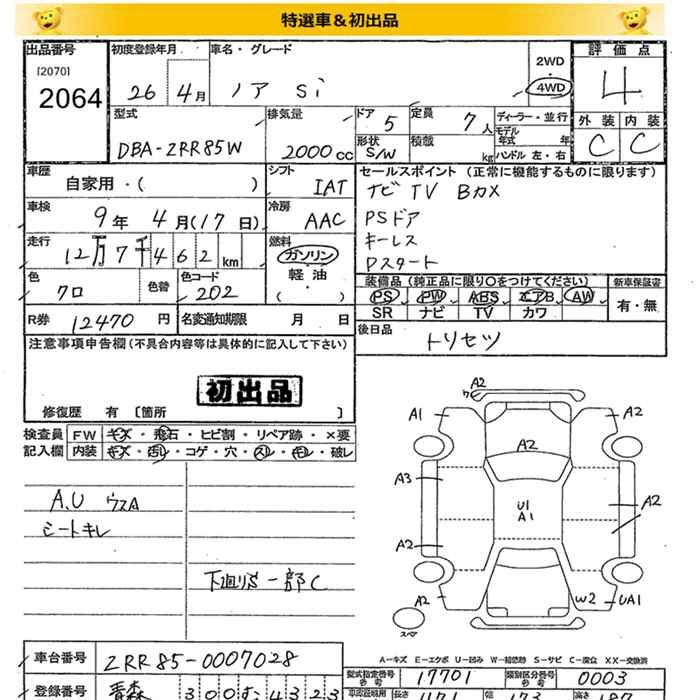 特選車&初出品
出品番号
[2070]
2064
初度登録年月
26 4月
車名・グレード
ノア Si
2WD
4WD
評価点
4
外装 内装
C C
型式
DBA-ZRR85W
排気量
2000cc
ドア 5
形状 S/W
定員 7人
積載 kg
ディーラー・並行
モデル年式 年
ハンドル 左・右
車歴
自家用・( )
シフト
IAT
セールスポイント (正常に機能するものに限ります)
ナビ TV Bカメ
PSドア
キーレス
Pスタート
車検
9年 4月(17日)
冷房
AAC
走行
12万7千462km
燃料
ガソリン
軽・油
( ・ )
色
クロ
色替
色コード
202
装備品 (純正品に限り○をつけてください)
PS PW ABS エアB AW
SR ナビ TV カワ
新車保証書
有・無
R券 12470円
名変通知期限 月 日
後日品
トリセツ
注意事項申告欄(不具合内容等は具体的に記入して下さい)
初出品
修復歴 有 〔箇所 〕
検査員記入欄
FW キズ・飛石・ヒビ割・リペア跡・×要
内装 キズ・汚れ・コゲ・穴・スレ・キレ・破レ
A.U ウスA
シートキレ
下廻りS 一部C
A2
ワレ
A1
A2
A2
A3
U1
A1
A2
A2
A2
W2
UA1
スペア
A-キズ E-エクボ U-凹み W-補修跡 S-サビ C-腐食 XX-交換済
車台番号 ZRR85-0007028
型式指定番号 17701
類別区分番号 0003
登録番号 青森 300す4323
長さ
幅
高さ